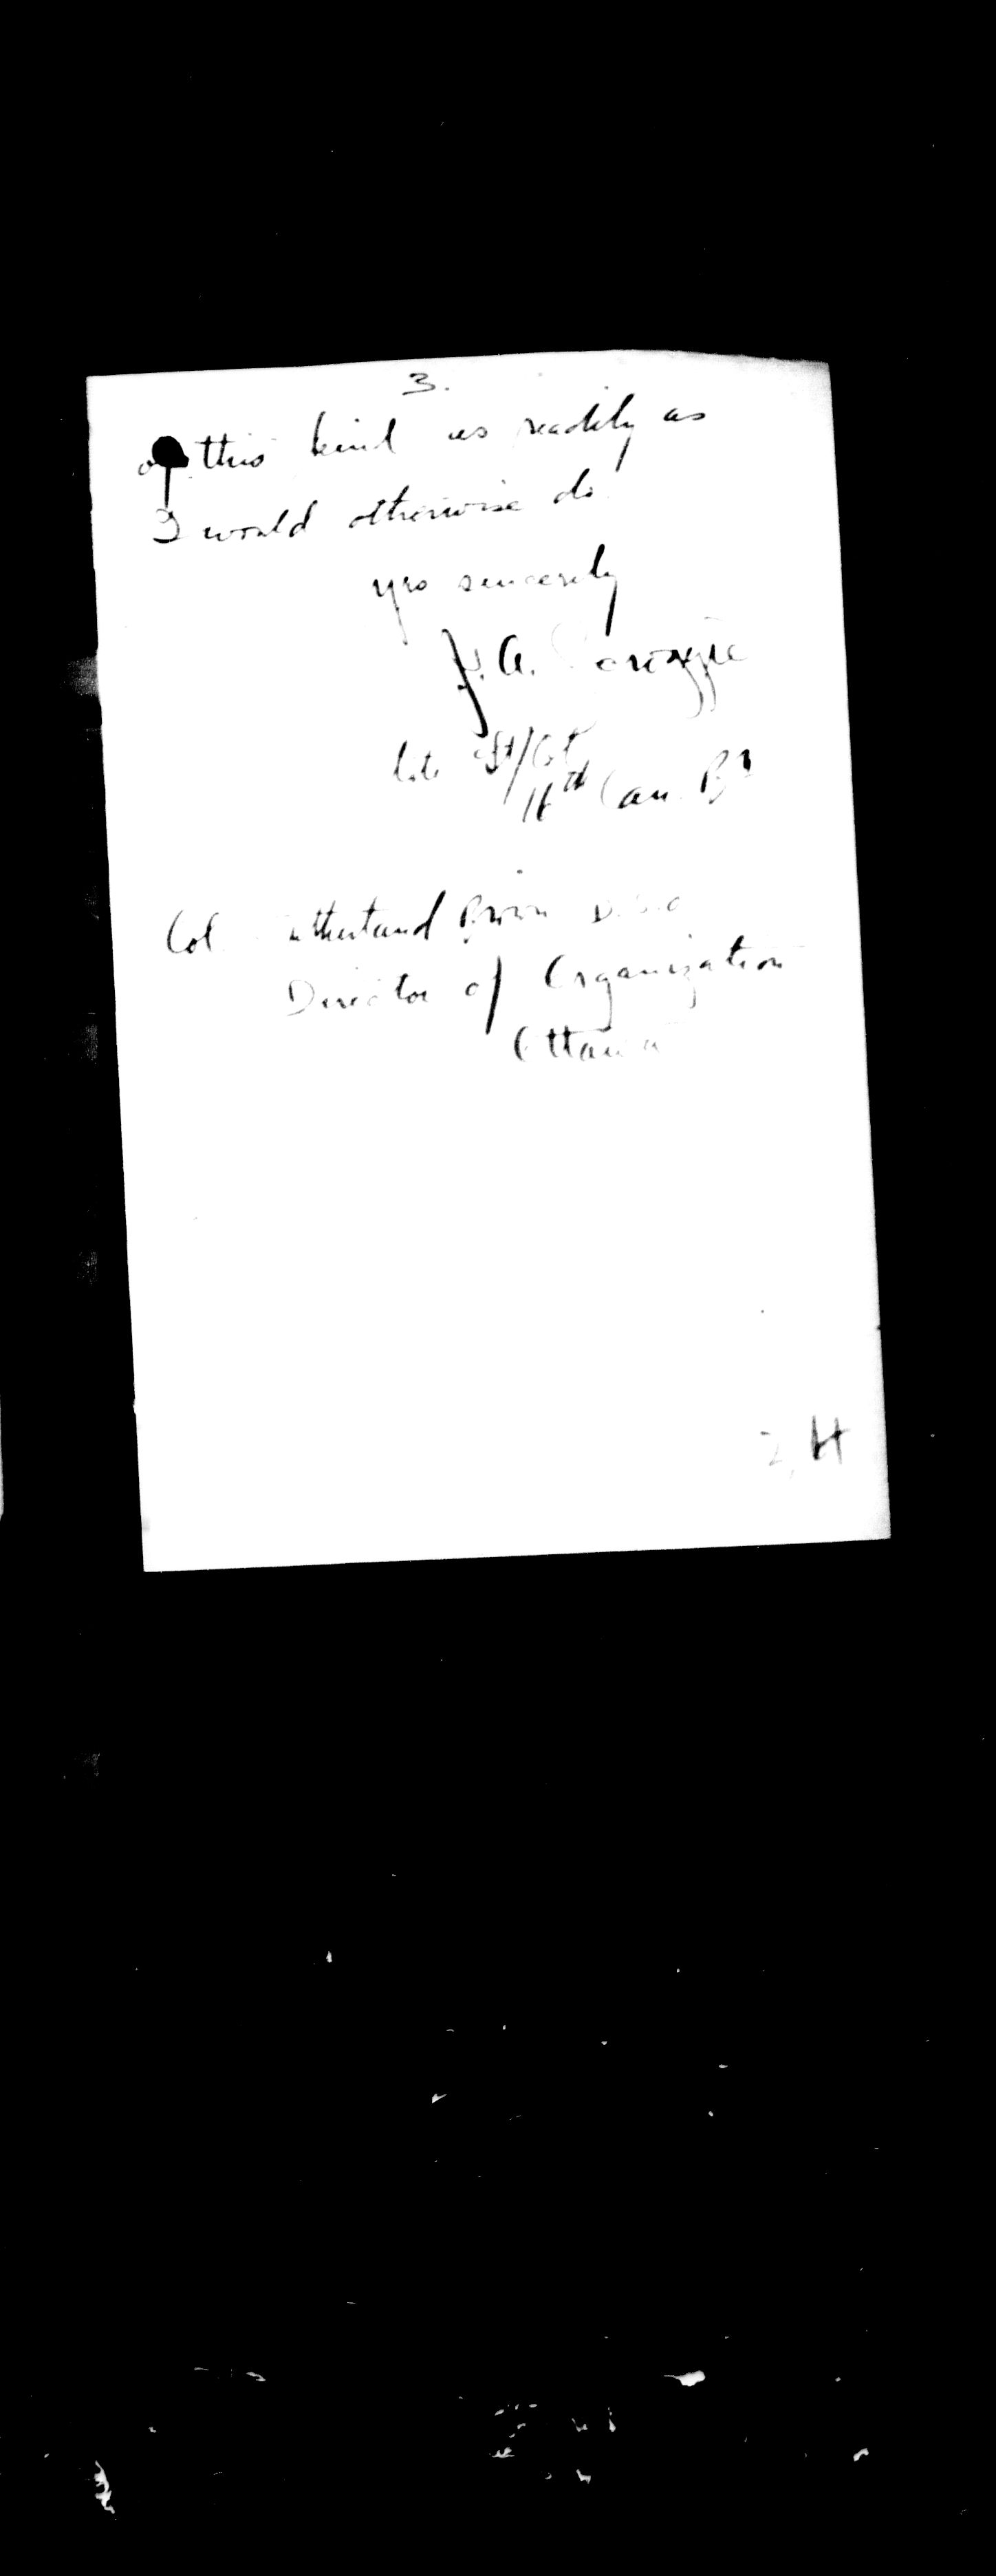 3.
of this kind as readily as
I would otherwise do.
yrs sincerely
J. A.
late Lt/Col
16th Can. Bn
Col Sutherland Brown D.S.O
Director of Organization
Ottawa